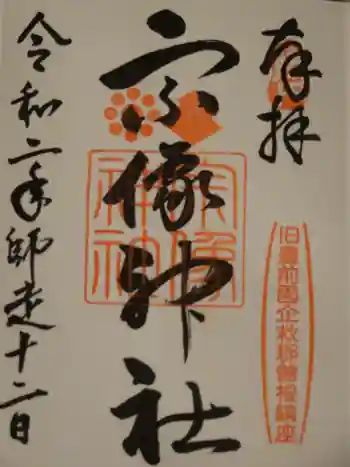 奉拝
旧豊前国企救郡曽根鎮座
宗像神社
令和二年師走十二日